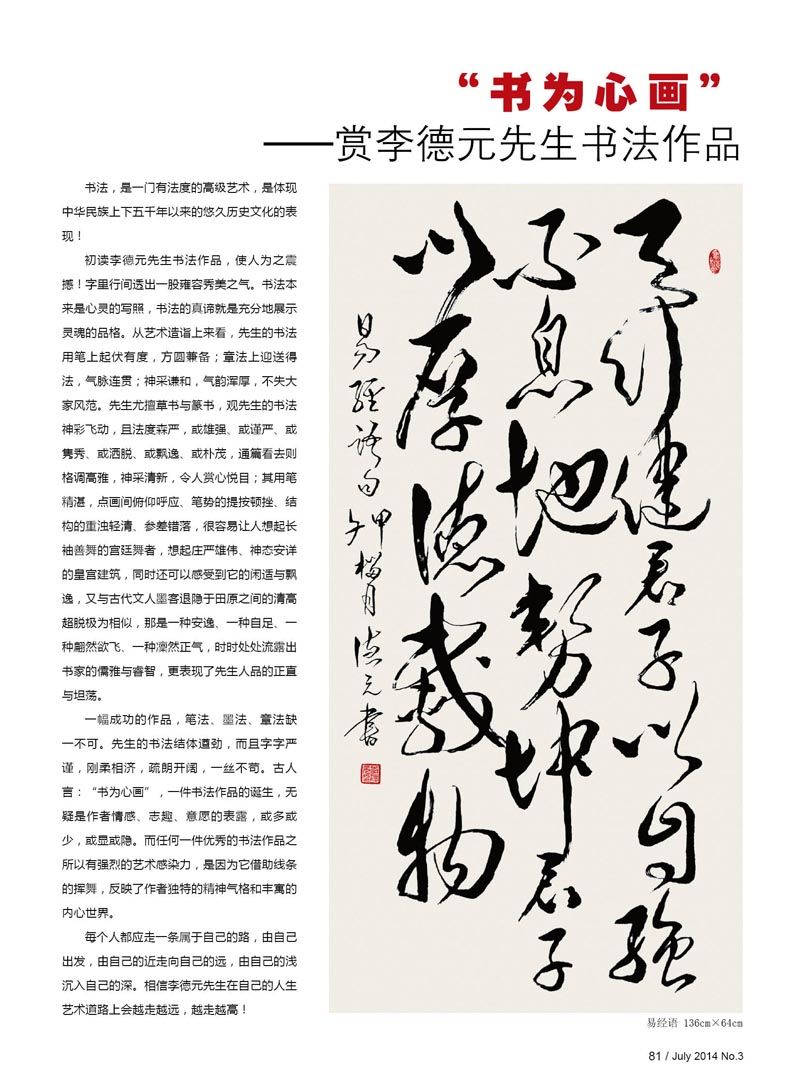 “书为心画”
——赏李德元先生书法作品
书法，是一门有法度的高级艺术，是体现
中华民族上下五千年以来的悠久历史文化的表
现！
初读李德元先生书法作品，使人为之震
撼！字里行间透出一股雍容秀美之气。书法本
来是心灵的写照，书法的真谛就是充分地展示
灵魂的品格。从艺术造诣上来看，先生的书法
用笔上起伏有度，方圆兼备；章法上迎送得
法，气脉连贯；神采谦和，气韵浑厚，不失大
家风范。先生尤擅草书与篆书，观先生的书法
神彩飞动，且法度森严，或雄强、或谨严、或
隽秀、或洒脱、或飘逸、或朴茂，通篇看去则
格调高雅，神采清新，令人赏心悦目；其用笔
精湛，点画间俯仰呼应、笔势的提按顿挫、结
构的重浊轻清、参差错落，很容易让人想起长
袖善舞的宫廷舞者，想起庄严雄伟、神态安详
的皇宫建筑，同时还可以感受到它的闲适与飘
逸，又与古代文人墨客退隐于田原之间的清高
超脱极为相似，那是一种安逸、一种自足、一
种翩然欲飞、一种凛然正气，时时处处流露出
书家的儒雅与睿智，更表现了先生人品的正直
与坦荡。
一幅成功的作品，笔法、墨法、章法缺
一不可。先生的书法结体遒劲，而且字字严
谨，刚柔相济，疏朗开阔，一丝不苟。古人
言：“书为心画”，一件书法作品的诞生，无
疑是作者情感、志趣、意愿的表露，或多或
少，或显或隐。而任何一件优秀的书法作品之
所以有强烈的艺术感染力，是因为它借助线条
的挥舞，反映了作者独特的精神气格和丰富的
内心世界。
每个人都应走一条属于自己的路，由自己
出发，由自己的近走向自己的远，由自己的浅
沉入自己的深。相信李德元先生在自己的人生
艺术道路上会越走越远，越走越高！
天行健君子以自強
不息地勢坤君子
以厚德載物
易經語句甲午榴月德元書
易经语 136cm×64cm
81 / July 2014 No.3